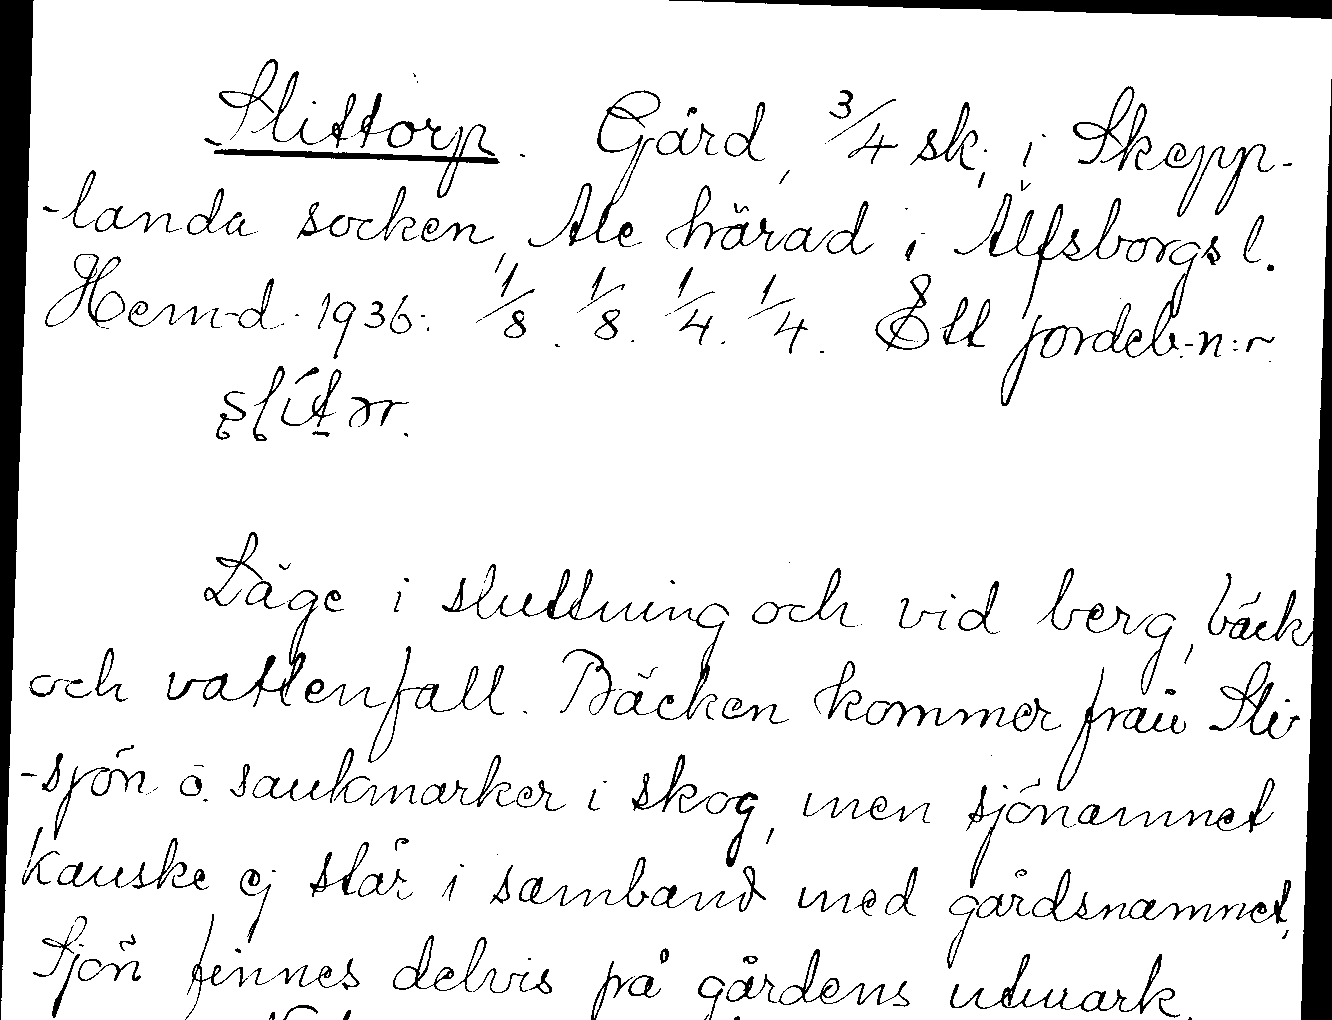 Slittorp. Gård, 3/4 sk, i Skepp-
-landa socken, Ale härad i Älfsborgs l.
Hemd. 1936: 1/8. 1/8. 1/4. 1/4. Ett jordeb.-n:r
Läge i sluttning och vid berg, bäck
och vattenfall. Bäcken kommer från Sli-
-sjön o. sankmarker i skog, men sjönamnet
kanske ej står i samband med gårdsnamnet.
Sjön finnes delvis på gårdens utmark.